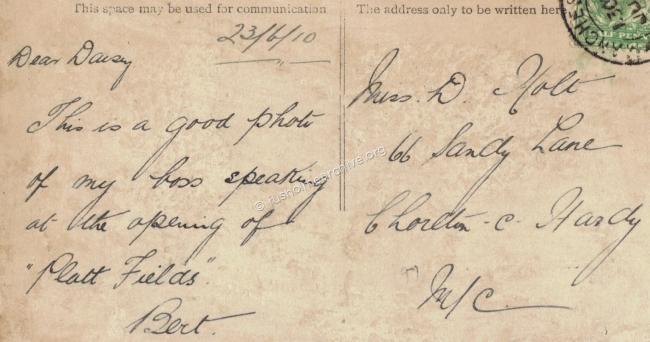 This space may be used for communication
The address only to be written here
HALF PENNY
MANCHESTER
23/6/10
Dear Daisy
This is a good photo
of my boss speaking
at the opening of
"Platt Fields".
Bert.
Miss. D. Holt
66 Sandy Lane
Chorlton-c-Hardy
M/C
© rusholmearchive.org